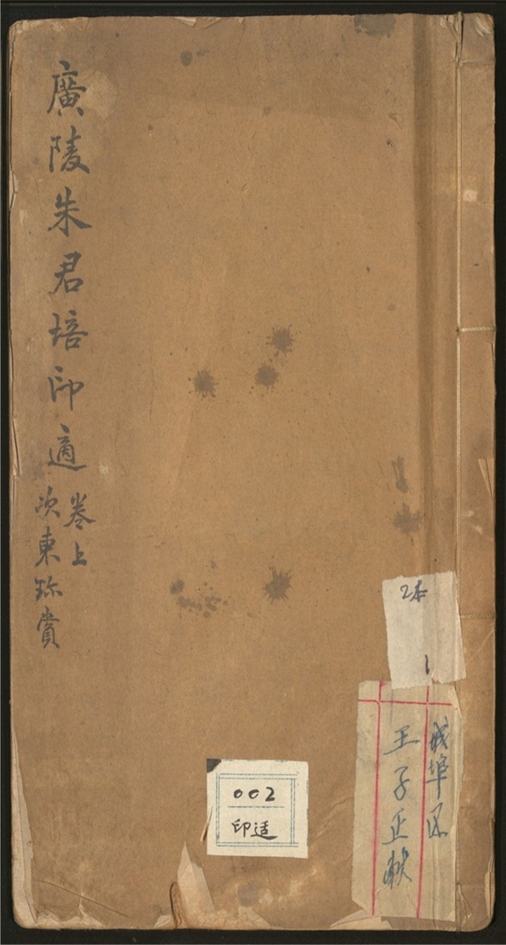 廣陵朱君培印適
卷上
次東珎賞
2本
1
王子正献
002
印适